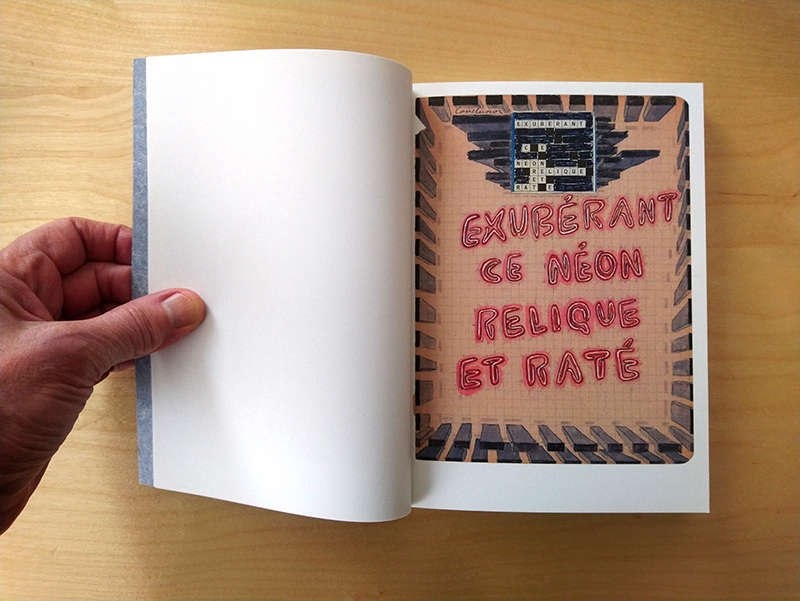 EXUBERANT
CE
NEON
RELIQUE
ET
RATE
EXUBÉRANT
CE NÉON
RELIQUE
ET RATÉ